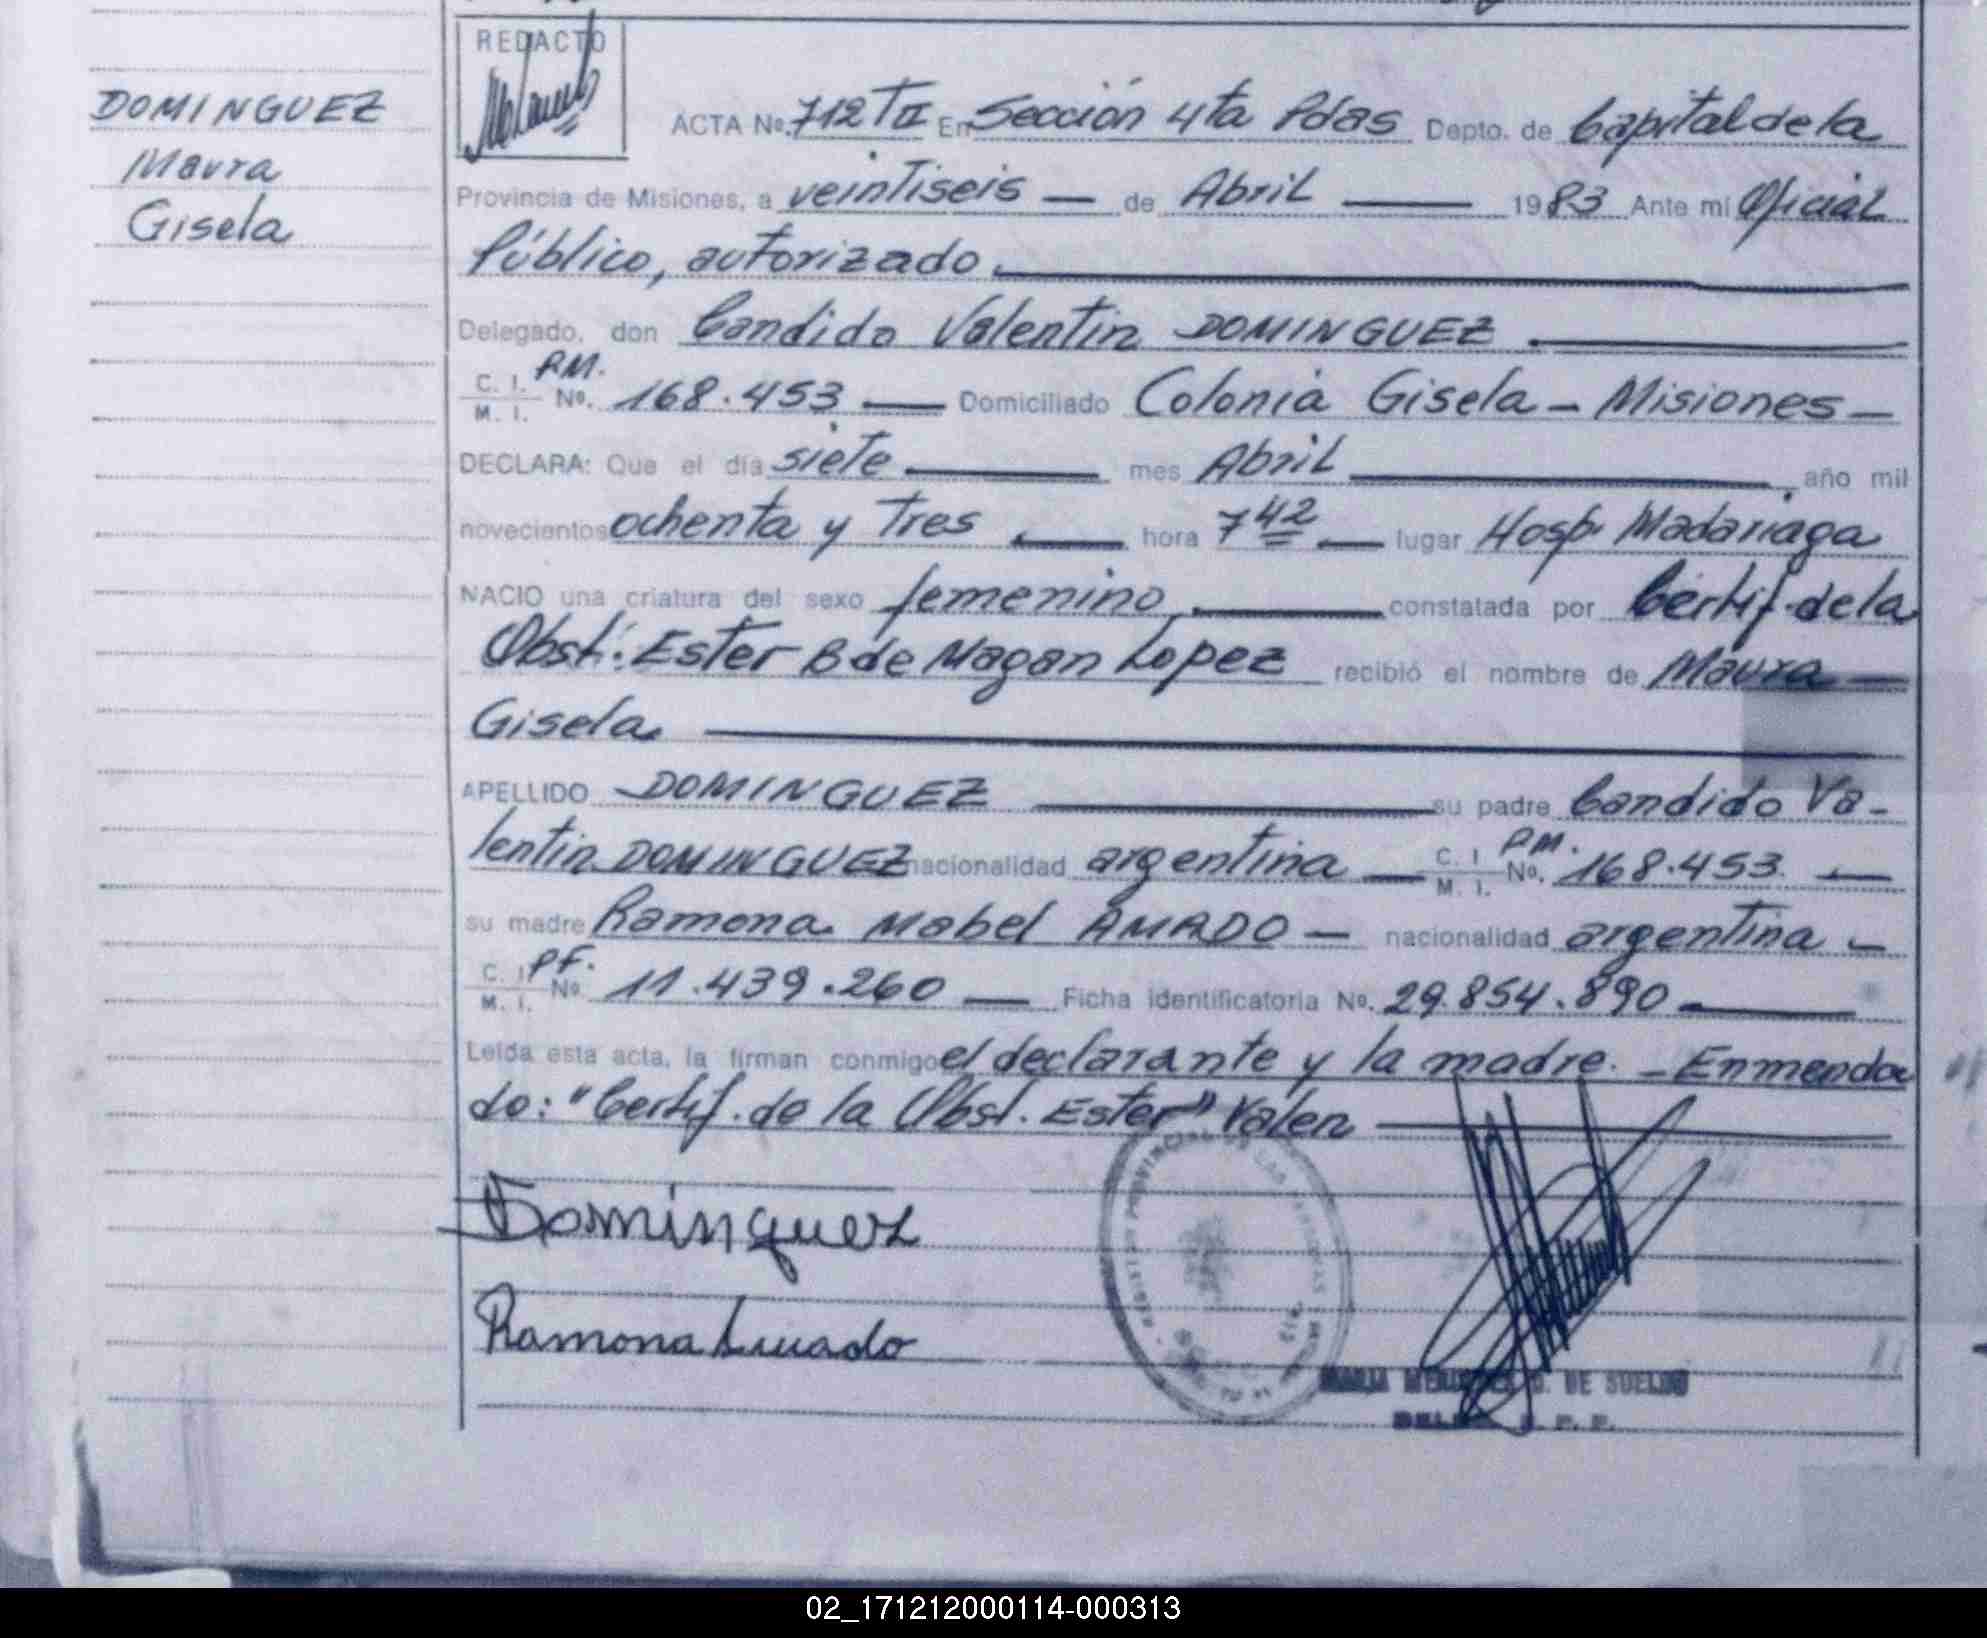 DOMINGUEZ
Maura
Gisela
REDACTO
ACTA No. 712 TII En Sección 4ta Pdas Depto. de Capital de la
Provincia de Misiones, a veintiseis — de Abril — 1983 Ante mí Oficial
Público, autorizado.
Delegado, don Candido Valentin DOMINGUEZ
C. I. M. I. No. RM. 168.453 — Domiciliado Colonia Gisela - Misiones -
DECLARA: Que el día siete — mes Abril —, año mil
novecientos ochenta y Tres — hora 7 42 — lugar Hosp. Madariaga
NACIO una criatura del sexo femenino, — constatada por Certif. de la
Obst. Ester B de Magan Lopez recibió el nombre de Maura —
Gisela
APELLIDO DOMINGUEZ — su padre Candido Va-
lentin DOMINGUEZ nacionalidad argentina — C. I M. I. No. RM. 168.453. —
su madre Ramona Mabel AMADO — nacionalidad argentina -
C. I M. I. No PF. 11.439.260 — Ficha identificatoria No. 29.854.890
Leída esta acta, la firman conmigo el declarante y la madre. - Enmenda
do: "Certif. de la Obst. Ester" Valen
Dominguez
Ramona Amado
MARIA D. DE SUELDO
02_171212000114-000313